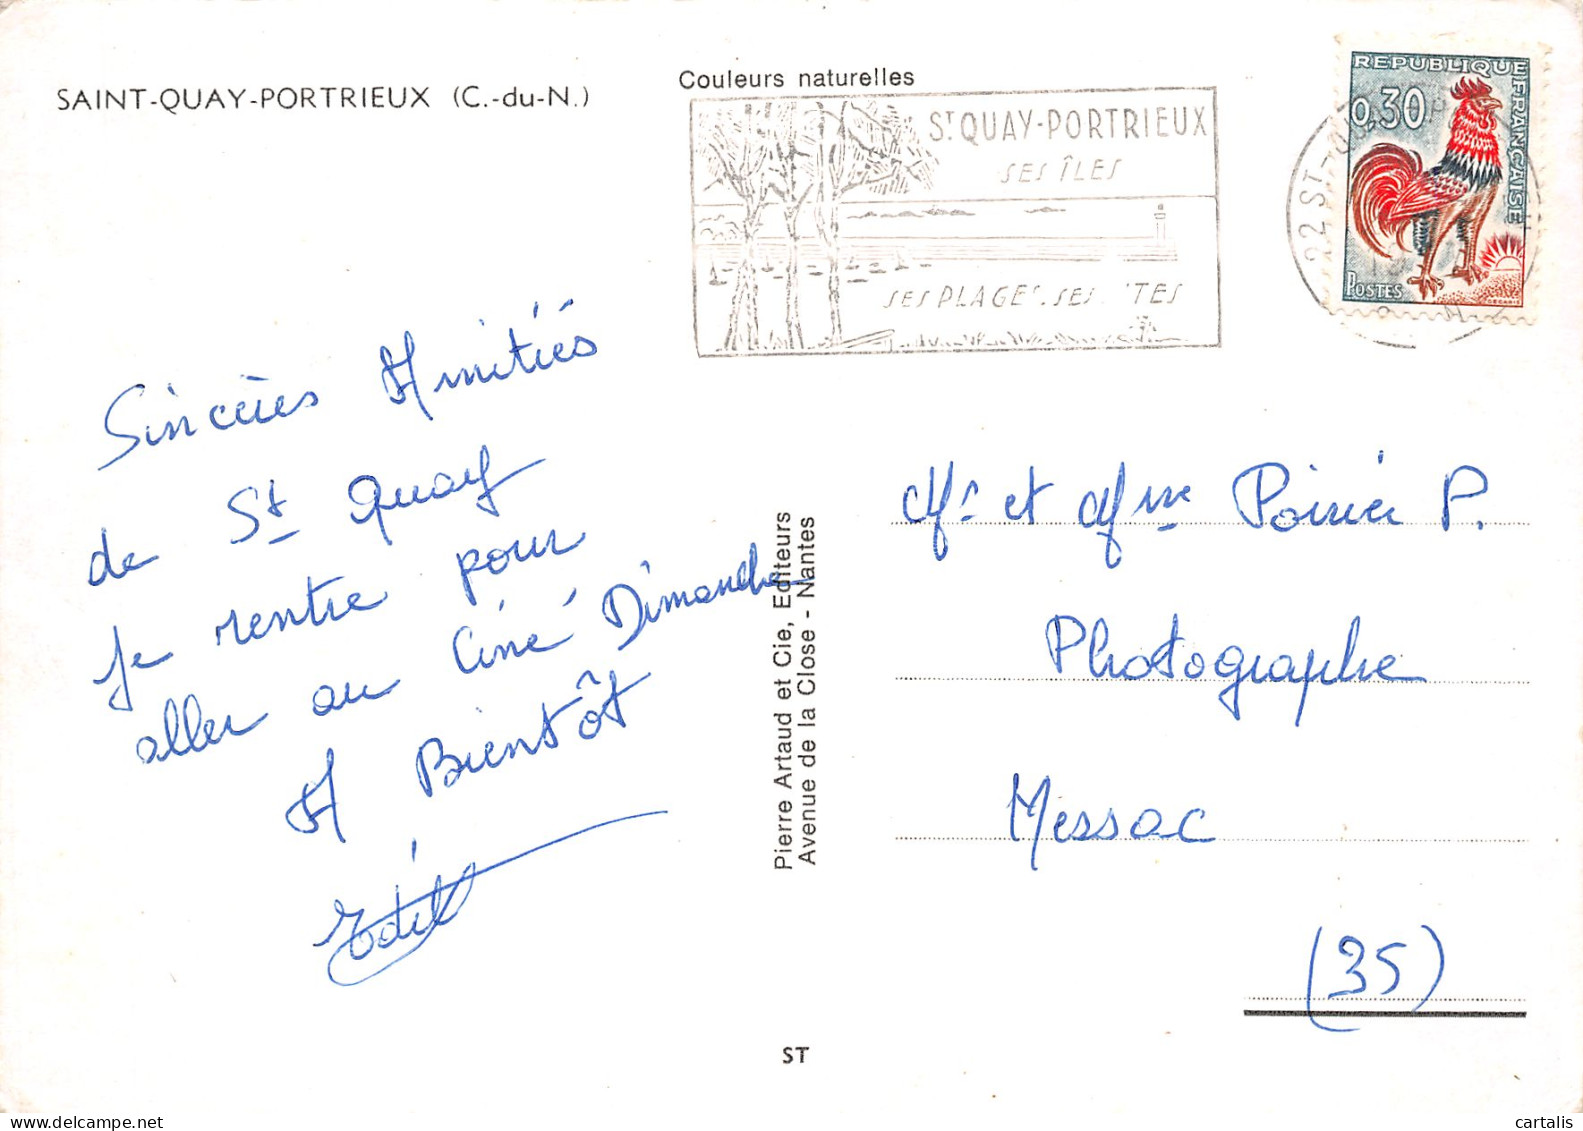 SAINT-QUAY-PORTRIEUX (C.-du-N.)
Couleurs naturelles
ST QUAY-PORTRIEUX
SES ÎLES
SES PLAGES.SES
REPUBLIQUE FRANÇAISE
0,30
POSTES
DECARIS
22 ST-QU
Sincères Amitiés
de St Quay
je rentre pour
aller au Ciné Dimanche
A Bientôt
Pierre Artaud et Cie, Editeurs
Avenue de la Close - Nantes
Mr et Mme Poirier P.
Photographe
Messac
(35)
ST
delcampe.net
cartalis